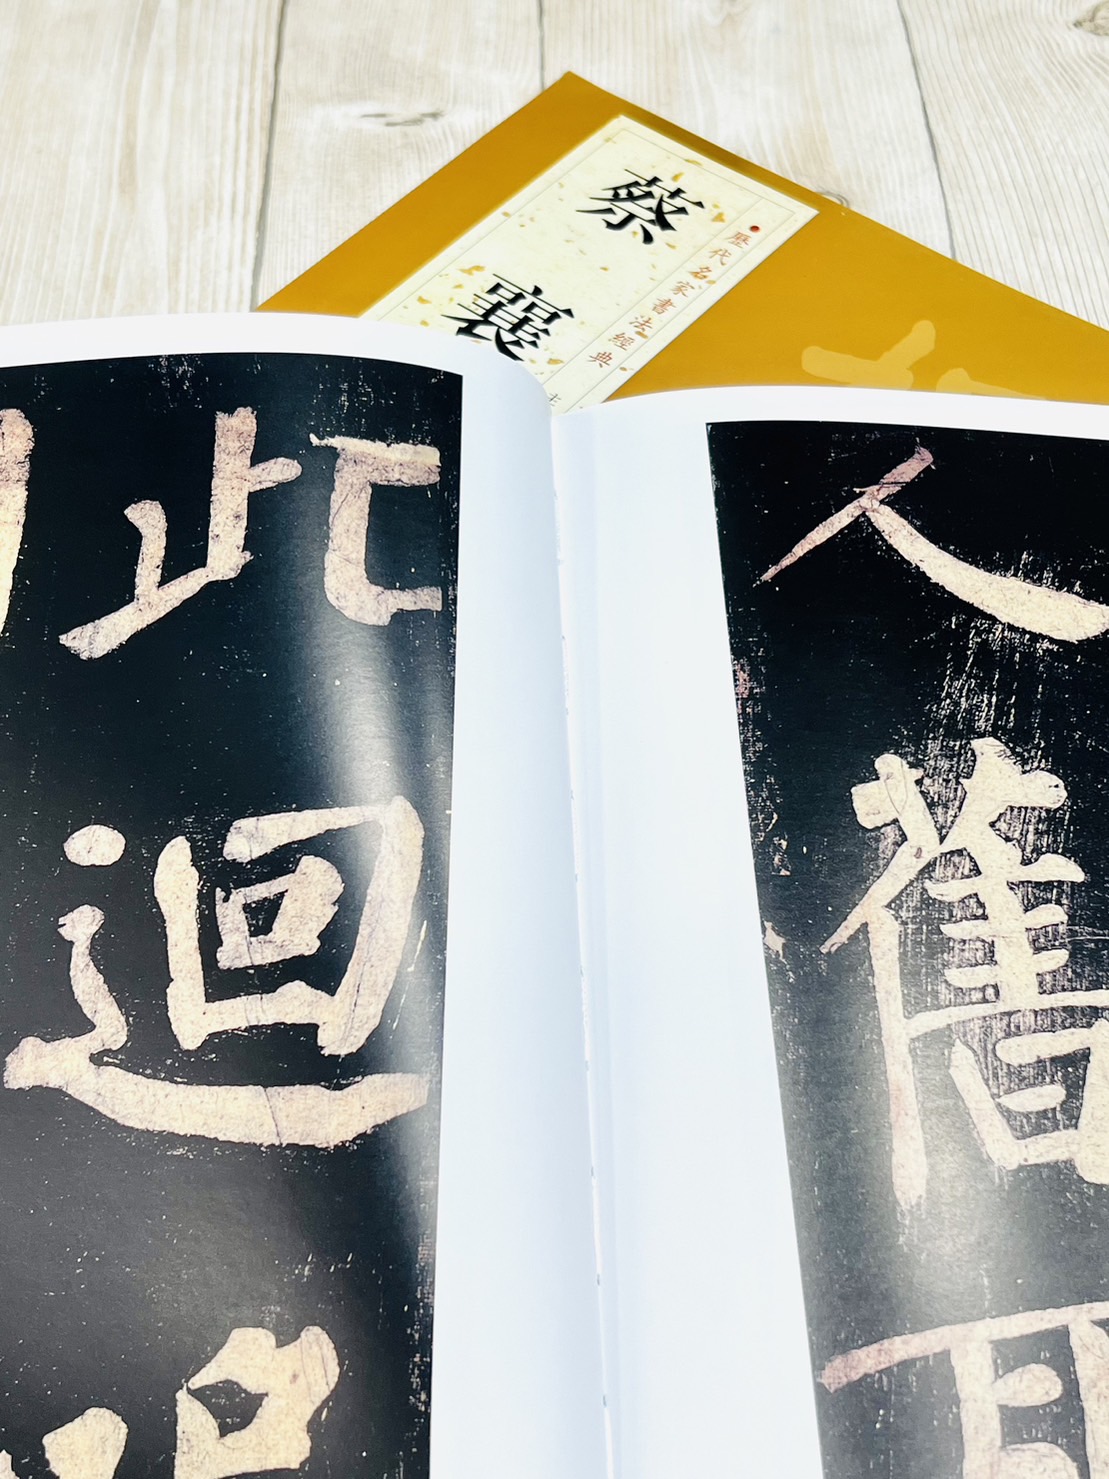 蔡襄
歷代名家書法經典
人舊
此迴